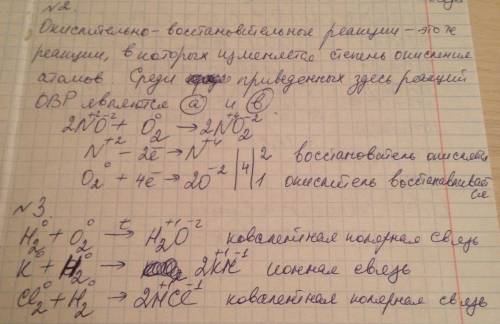 №2.
Окислительно-восстановительные реакции - это ж
реакции, в которых изменяется степень окисления
атомов. Среди приведенных здесь реакций
ОВР являются а и в
2N⁺²O⁻² + O₂⁰ → 2N⁺⁴O₂⁻²
N⁺² - 2ē → N⁺⁴ | 4 | 2 восстановитель окисляется
O₂⁰ + 4ē → 2O⁻² | 1 окислитель восстанавливается
№3.
H₂⁰ + O₂⁰ →t H₂⁺¹O⁻² ковалентная полярная связь
K⁰ + H₂⁰ → 2K⁺¹H⁻¹ ионная связь
Cl₂⁰ + H₂⁰ → 2H⁺Cl⁻¹ ковалентная полярная связь